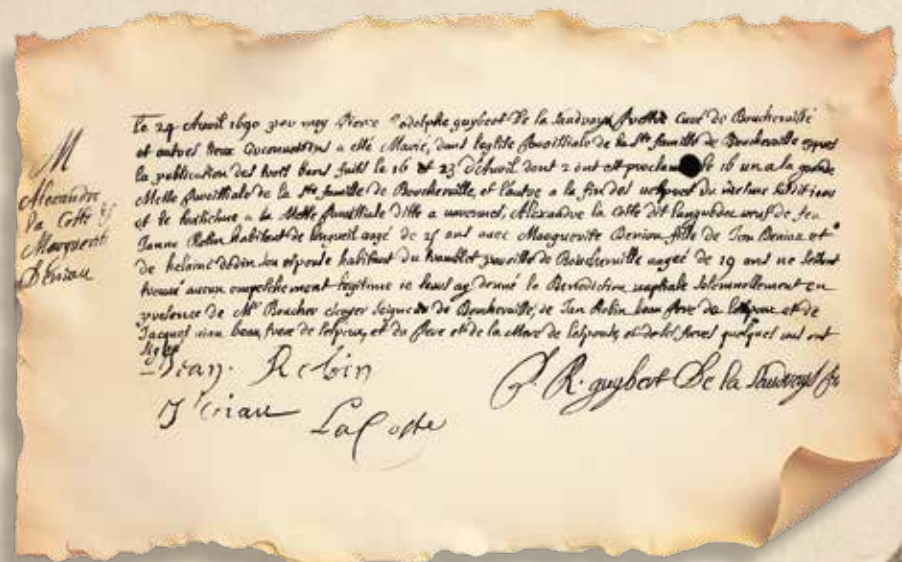 M
Alexandre
la Coste et
Marguerit
Deniau
Le 24 Avril 1690 par moy Pierre Rodolphe guybert De la Saudrays Prettre Curé de Boucherville
et autres lieux Circonvoisins a esté Marié, dans l'eglise Paroissialle de la Ste famille de Boucherville apres
la publication des trois bans faits le 16 et 23 d'Avril dont 2 ont esté proclamé le 16 un a la grande
Messe Paroissiale de la Ste famille de Boucherville, et l'autre a la fin des vespres du mesme
et le troisieme a la Messe Paroissiale ditte a Alexandre la Coste dit languedoc veuf de feu
Janne Robin habitant de longueil aagé de 25 ans avec Marguerite Deniau fille de Jean Deniau et
de helaine dodin son espouse habitant du tramblot paroisse de Boucherville aagée de 19 ans ne s'estant
trouvé aucun empeschement legitime je leurs ay donné la Benediction nuptiale solemnellement en
presence de Mr Boucher escuyer seigneur de Boucherville, de Jan Robin beau frere de l'espoux et de
Jacques viau beau frere de l'espoux, et du Pere et de la Mere de l'espouse, et de ses freres quelques uns ont
signé
Jean Robin
P. R. guybert De la Saudrays
J Viau
LaCoste